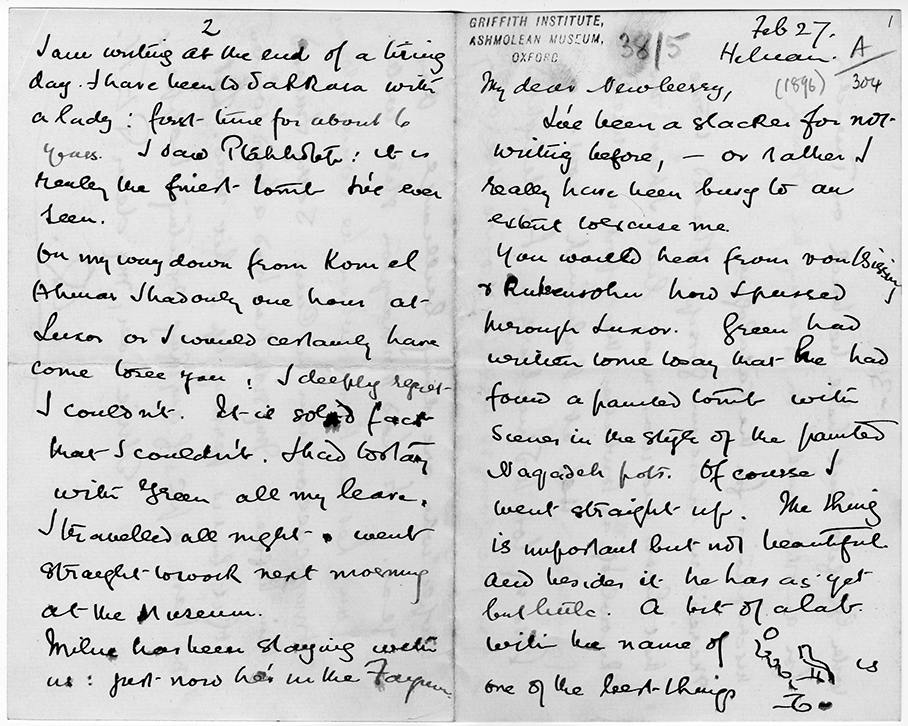 1
GRIFFITH INSTITUTE,
ASHMOLEAN MUSEUM,
OXFORD
38/5
Feb 27.
Helwan.
A
304
(1896)
My dear Newberry,
I've been a slacker for not
writing before, — or rather I
really have been busy to an
extent to excuse me.
You would hear from von Bissing
& Rubensohn how I passed
through Luxor. Green had
written to me to say that he had
found a painted tomb with
scenes in the style of the painted
Naqadeh pots. Of course I
went straight up. The thing
is important but not beautiful
and besides it he has as yet
but little. A bit of alab.
with the name of is
one of the best things
2
I am writing at the end of a tiring
day. I have been to Sakkara with
a lady: first time for about 6
years. I saw Ptahhotep: it is
really the finest tomb I've ever
seen.
On my way down from Kom el
Ahmar I had only one hour at
Luxor or I would certainly have
come to see you; I deeply regret
I couldn't. It is solid fact
that I couldn't. I had to stay
with Green all my leave,
I travelled all night & went
straight to work next morning
at the Museum.
Milne has been staying with
us: just now he's in the Fayum